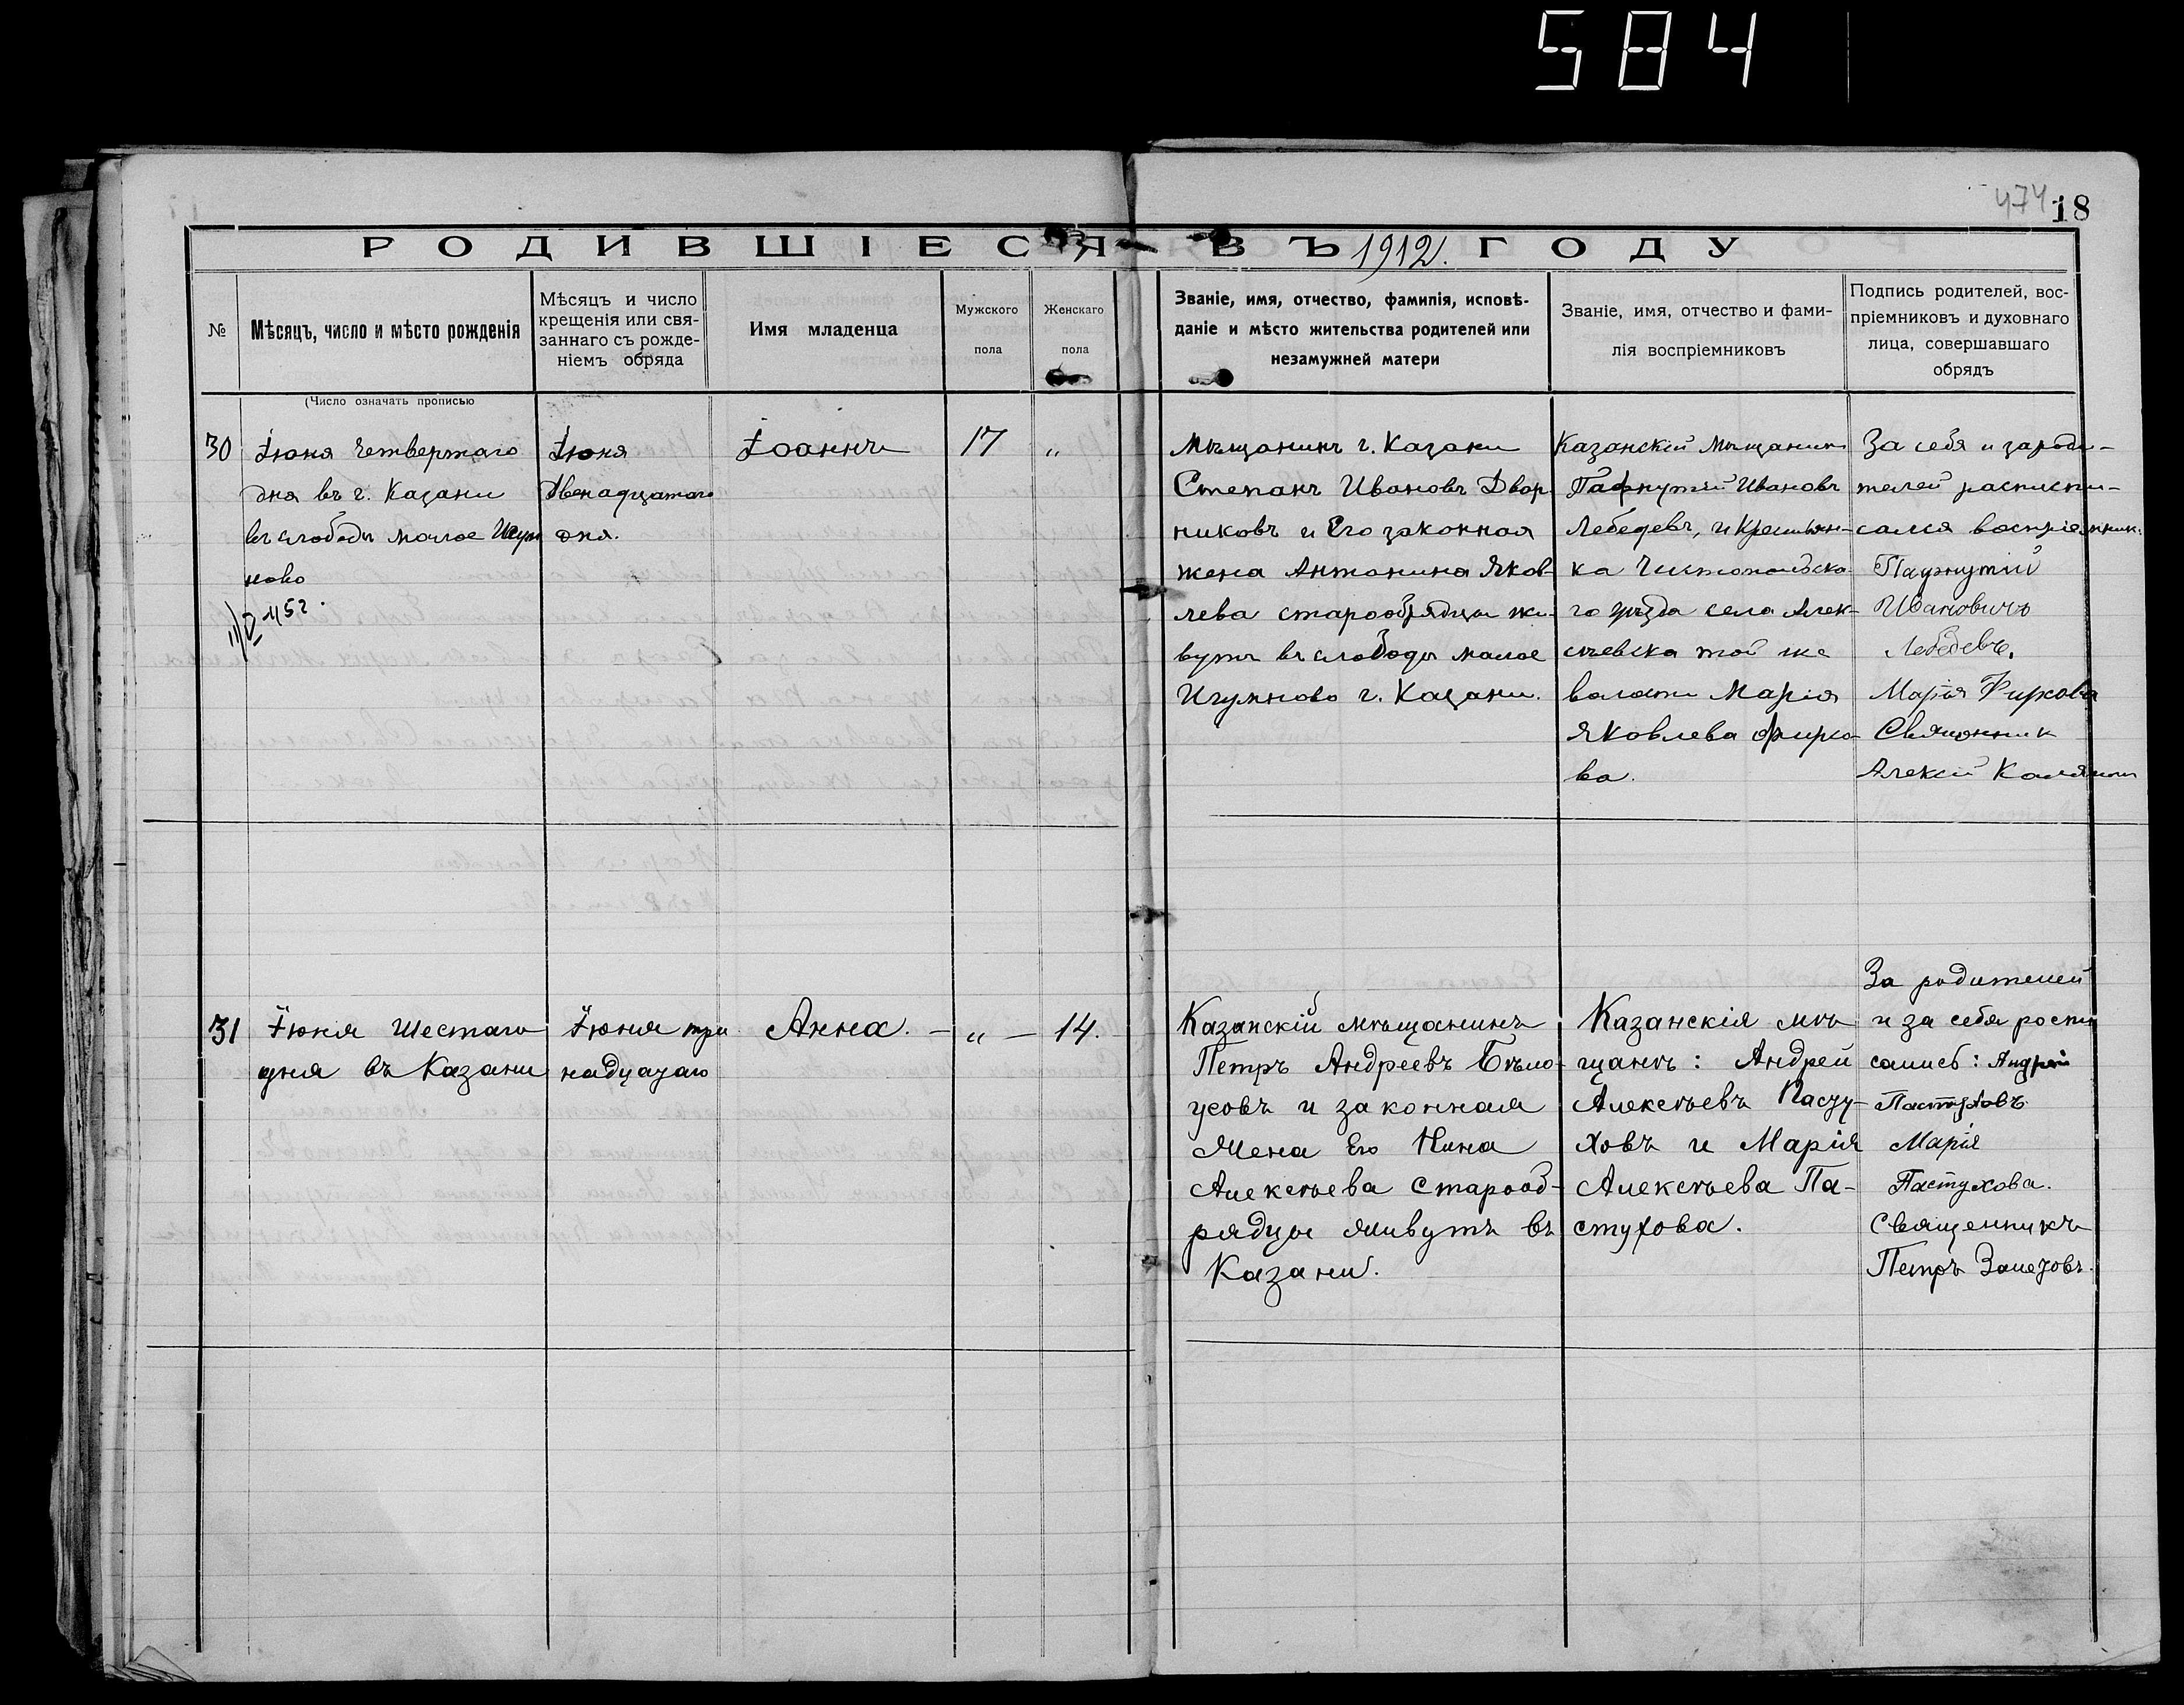 584
474
18
РОДИВШІЕСЯ ВЪ 1912. ГОДУ
№
Мѣсяцъ, число и мѣсто рожденія
Мѣсяцъ и число
крещенія или свя-
заннаго съ рожде-
ніемъ обряда
Имя младенца
Мужского
пола
Женскаго
пола
Званіе, имя, отчество, фамилія, исповѣ-
даніе и мѣсто жительства родителей или
незамужней матери
Званіе, имя, отчество и фами-
лія воспріемниковъ
Подпись родителей, вос-
пріемниковъ и духовнаго
лица, совершавшаго
обрядъ
(Число означать прописью
30
Іюня четвертаго
дня въ г. Казани
въ слободѣ малое Игум
ново
Іюня
Двенадцатаго
дня.
Іоаннъ
17
„
Мѣщанинъ г. Казани
Степанъ Ивановъ Двор
никовъ и Его законная
жена Антонина Яков-
лева старообрядцы жи-
вутъ въ слободѣ малое
Игумново г. Казани.
Казанскій Мѣщанин
Пафнутій Ивановъ
Лебедевъ, и Крестьян-
ка Чистопольска
го уѣзда села Алек-
сѣевска той же
волости Марія
Яковлева Фирсо-
ва.
За себя и зароди-
телей расписы-
сался воспріемник
Пафнутій
Ивановичъ
Лебедевъ.
Марія Фирсова
Священник
Алексѣй Калягин
31
Іюня Шестаго
дня въ Казани
Іюния три
надцатаго
Анна. —
„ —
14.
Казанскій мѣщанинъ
Петръ Андреевъ Бѣло-
усовъ и законная
Жена Его Нина
Алексѣева Старооб-
рядцы живутъ въ
Казани.
Казанскія мѣ
щанѣ: Андрей
Алексѣевъ Пасту-
ховъ и Марія
Алексѣева Па-
стухова.
За родителей
и за себя роспи
сались: Андрей
Пастуховъ
Марія
Пастухова.
Священникъ
Петръ Залетовъ.